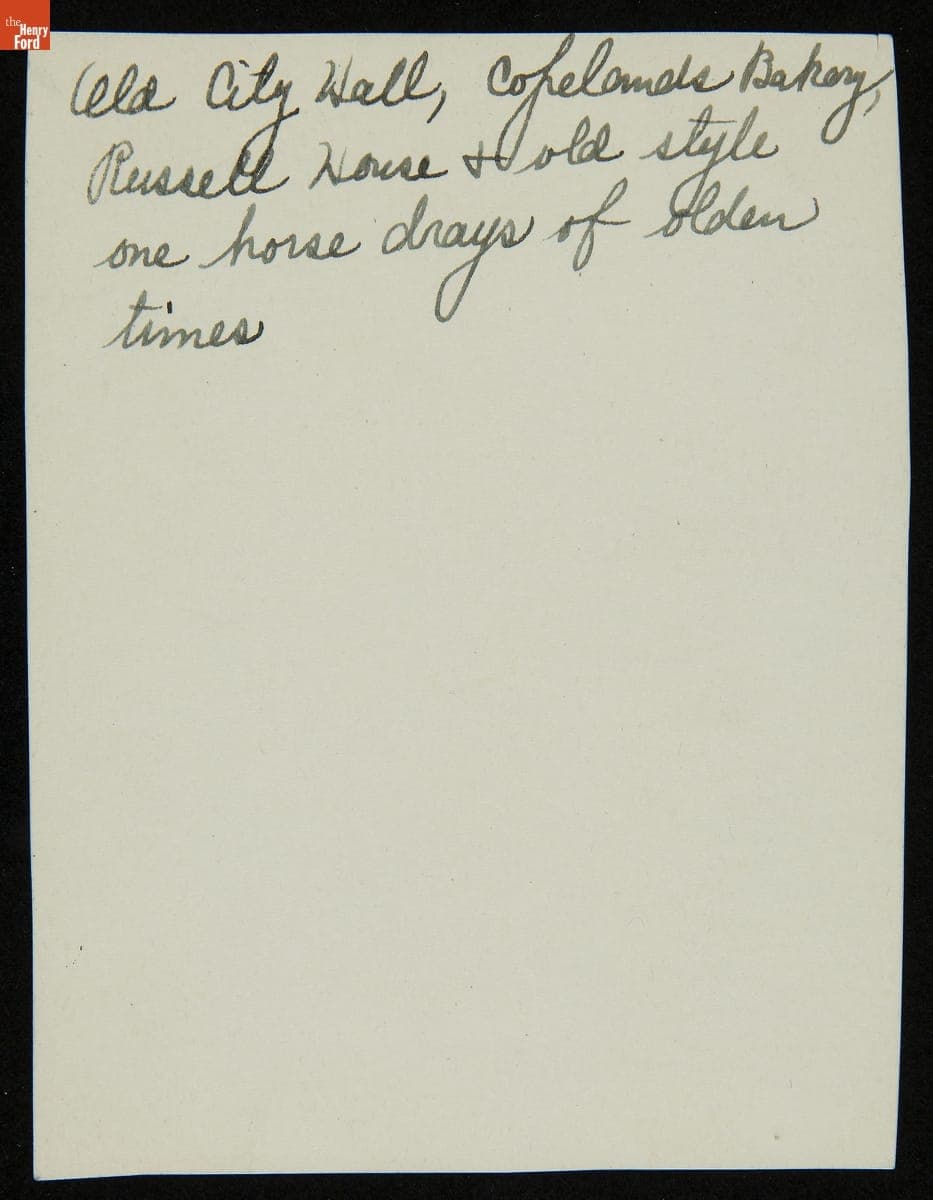 the
Henry
Ford
Old City Hall, Copelands Bakery,
Russell House & old style
one horse drays of olden
times